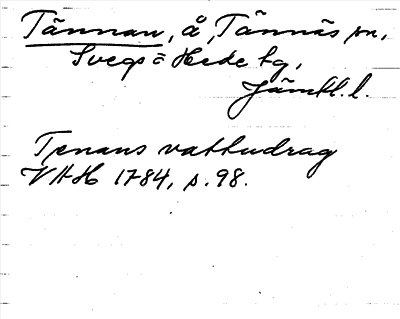 Tännan, å, Tännäs sn,
Svegs o Hede tg,
Jämtl. l.
Tenans vattudrag
VHH 1784, s. 98.